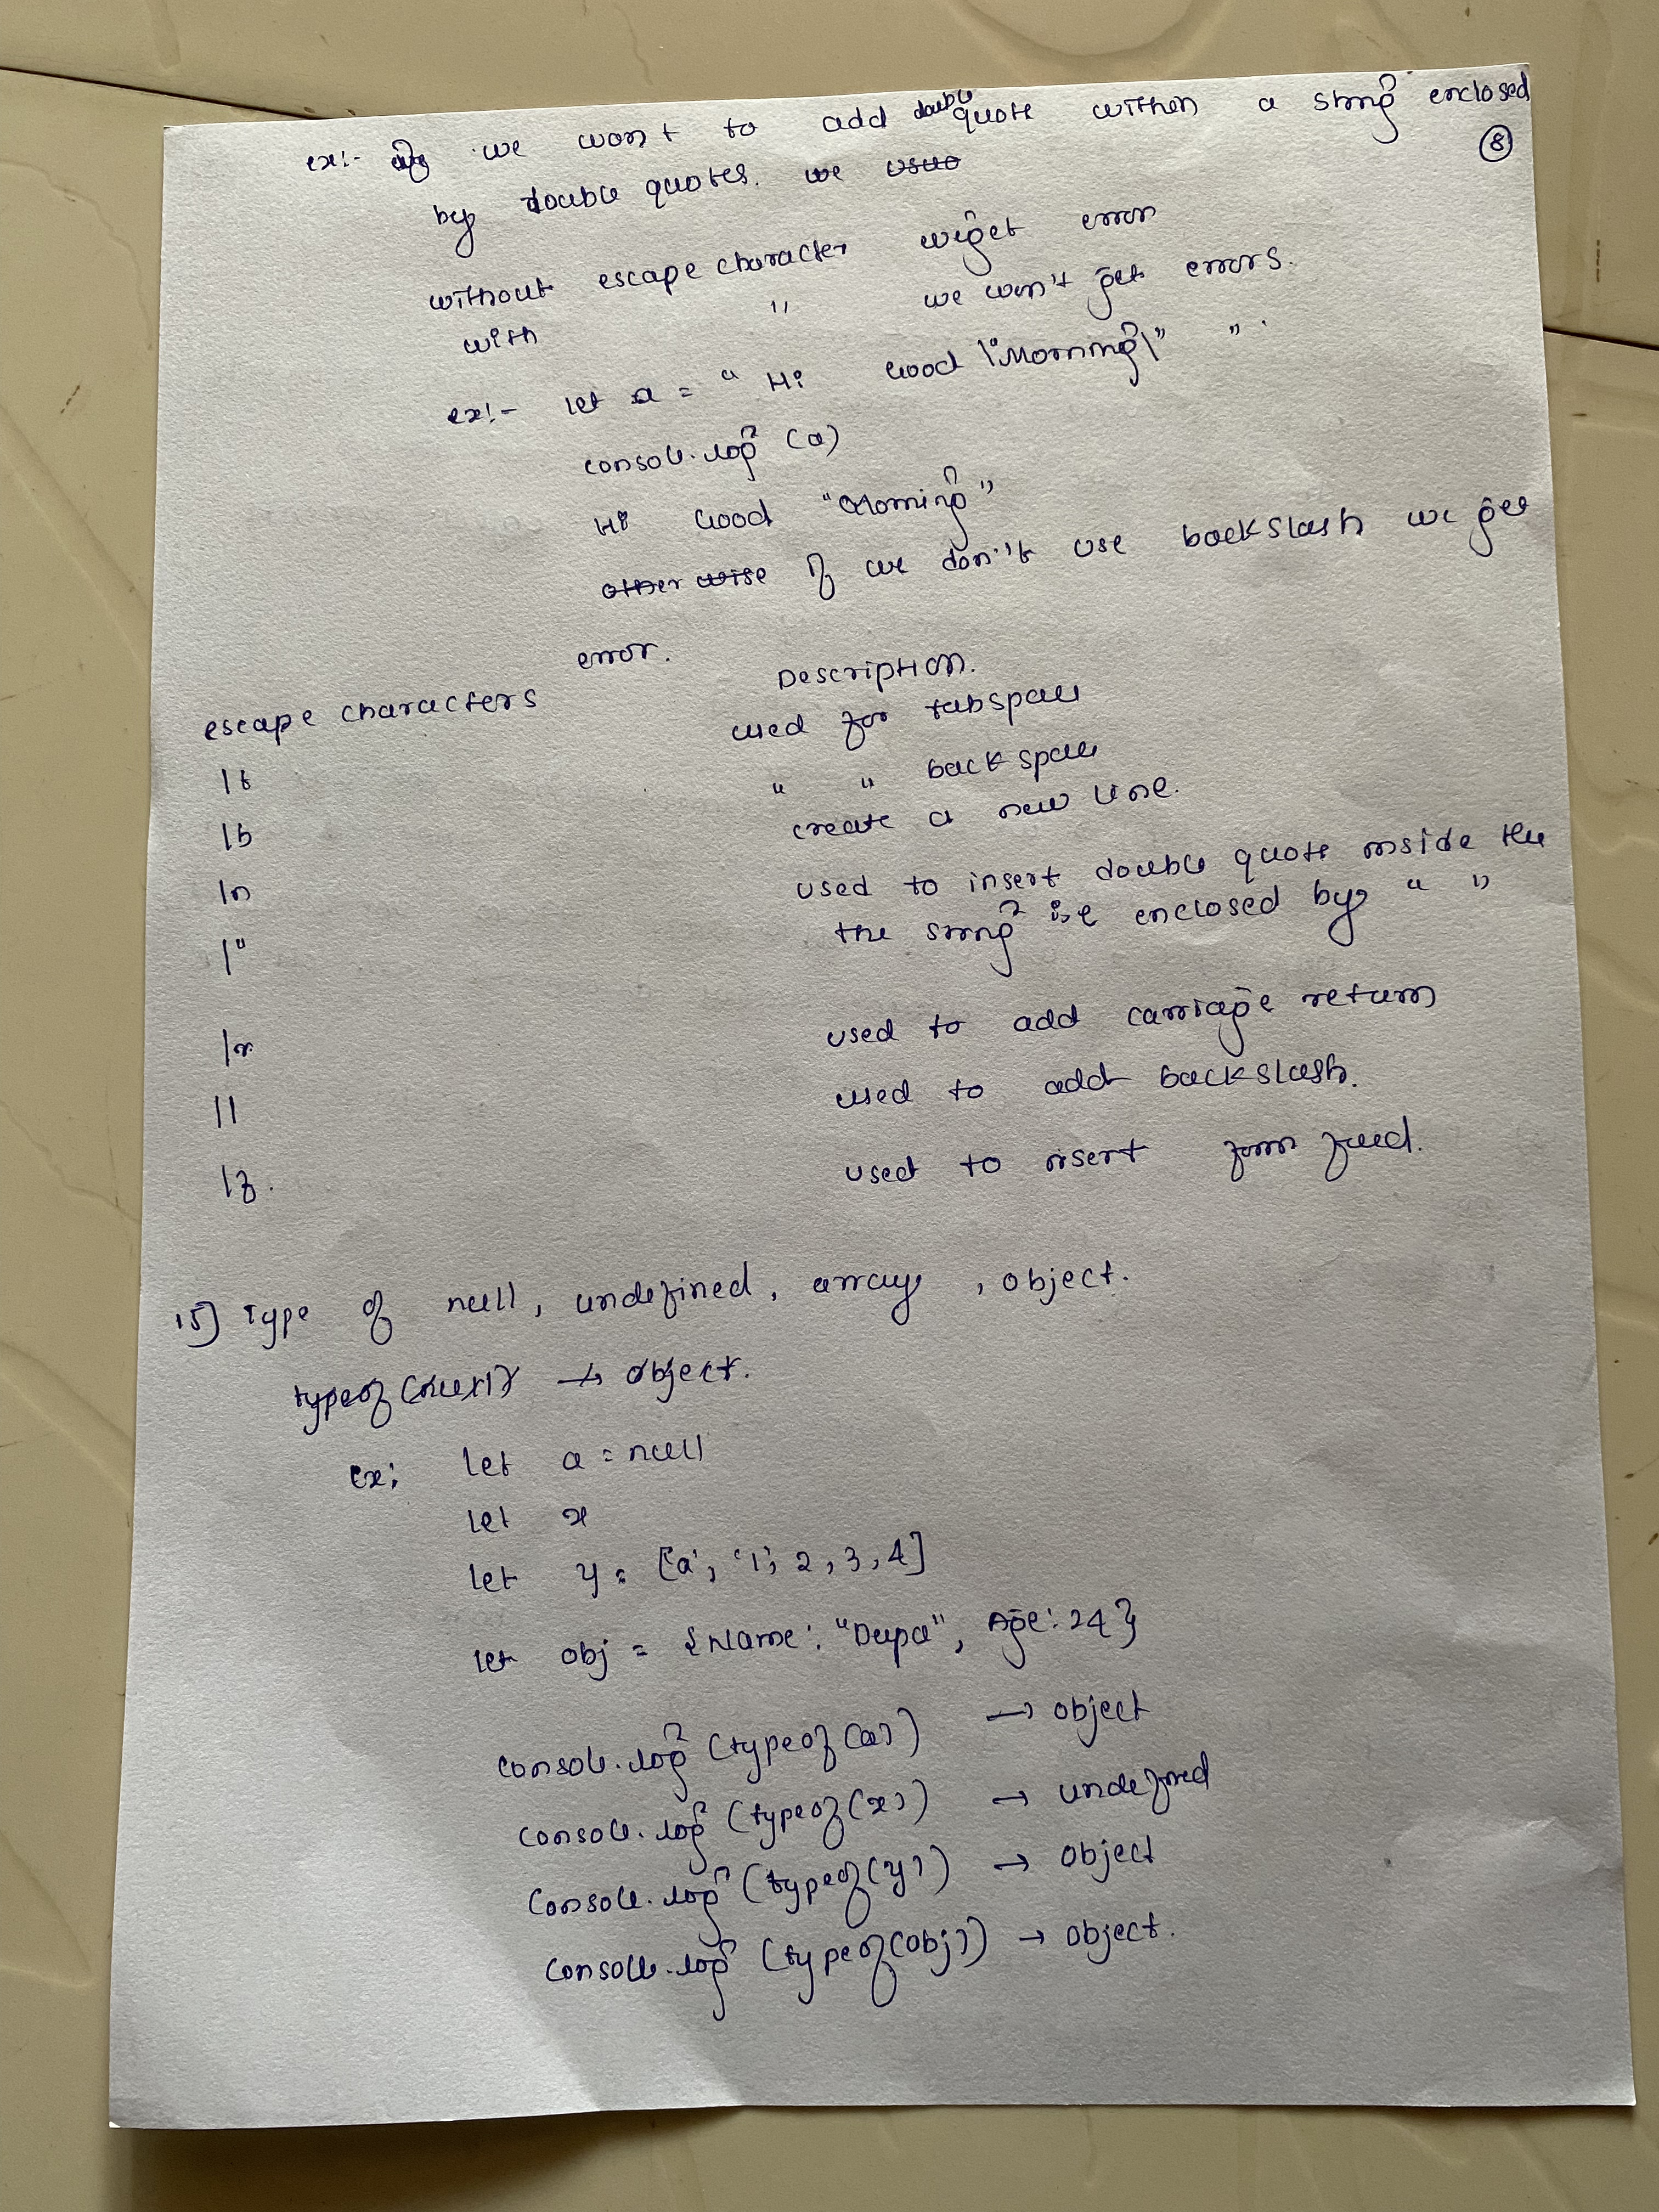 ex:- if we want to add double quote within a string enclosed
⑧
by double quotes. we
without escape character we get error
with " we won't get errors.
ex:- let a = " Hi Good \"Morning\" "
console.log (a)
Hi Good "Morning"
otherwise if we don't use backslash we get
error.
escape characters Description.
\t used for tabspace
\b " " backspace
\n create a new line.
\" used to insert double quote inside the
the string is enclosed by " "
\r used to add carriage return
\\ used to add backslash.
\f. used to insert form feed.
15) Type of null, undefined, array, object.
typeof (null) → object.
ex: let a = null
let x
let y = ['a', '1', 2, 3, 4]
let obj = {Name: "Deepa", Age: 24}
console.log (typeof (a)) → object
console.log (typeof (x)) → undefined
console.log (typeof (y)) → object
console.log (typeof (obj)) → object.